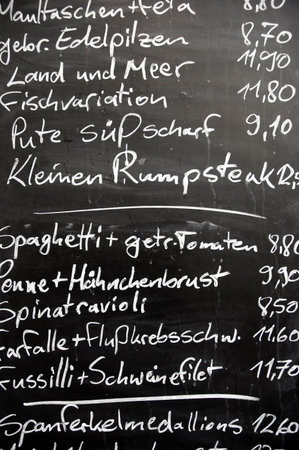 Maultaschen + Feta 8,80
gebr. Edelpilzen 8,70
Land und Meer 11,90
Fischvariation 11,80
Pute süß scharf 9,10
Kleinen Rumpsteak
Spaghetti + getr. Tomaten 8,80
Penne + Hähnchenbrust 9,90
Spinatravioli 8,50
Farfalle + Flußkrebsschw. 11,60
Fussilli + Schweinefilet 11,70
Spanferkelmedallions 12,60